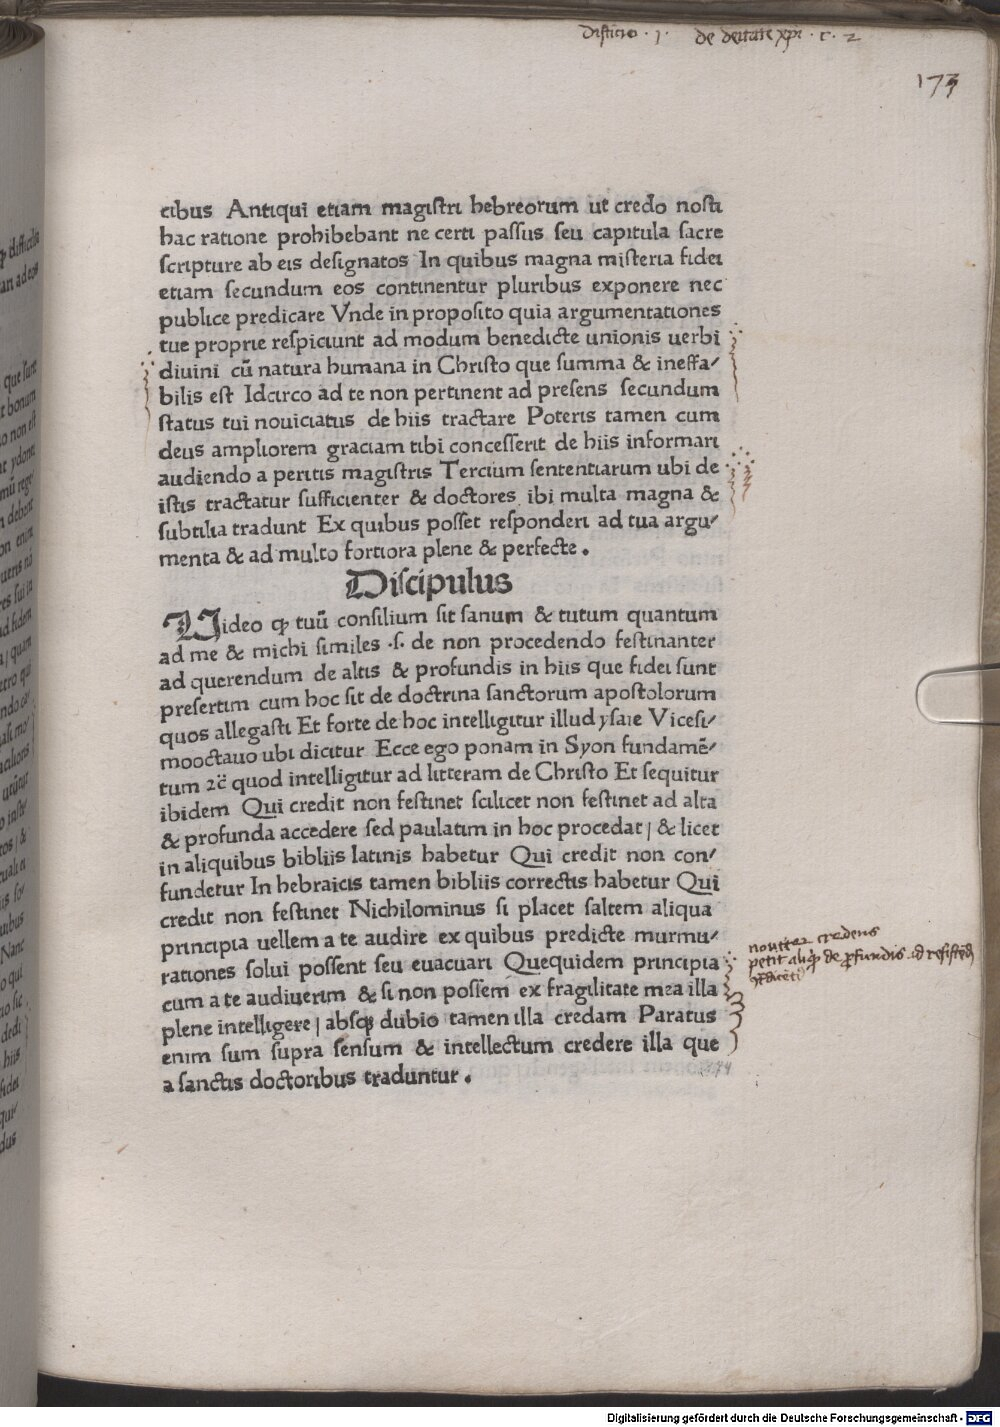 Distinctio · 1 · de deitate xpi · c · 2
173
cibus Antiqui etiam magistri hebreorum ut credo nosti
hac ratione prohibebant ne certi passus seu capitula sacre
scripture ab eis designatos In quibus magna misteria fidei
etiam secundum eos continentur pluribus exponere nec
publice predicare Vnde in proposito quia argumentationes
tue proprie respiciunt ad modum benedicte unionis uerbi
diuini cū natura humana in Christo que summa & ineffa/
bilis est Idcirco ad te non pertinent ad presens secundum
status tui nouiciatus de hiis tractare Poteris tamen cum
deus ampliorem graciam tibi concesserit de hiis informari
audiendo a peritis magistris Tercium sententiarum ubi de
istis tractatur sufficienter & doctores ibi multa magna &
subtilia tradunt Ex quibus posset responderi ad tua argu/
menta & ad multo fortiora plene & perfecte .
Discipulus
Uideo ꝙ tuū consilium sit sanum & tutum quantum
ad me & michi similes ·s· de non procedendo festinanter
ad querendum de altis & profundis in hiis que fidei sunt
presertim cum hoc sit de doctrina sanctorum apostolorum
quos allegasti Et forte de hoc intelligitur illud ysaie Vicesi/
mooctauo ubi dicitur Ecce ego ponam in Syon fundamē/
tum ⁊c̄ quod intelligitur ad litteram de Christo Et sequitur
ibidem Qui credit non festinet scilicet non festinet ad alta
& profunda accedere sed paulatim in hoc procedat / & licet
in aliquibus bibliis latinis habetur Qui credit non con/
fundetur In hebraicis tamen bibliis correctis habetur Qui
credit non festinet Nichilominus si placet saltem aliqua
principia uellem a te audire ex quibus predicte murmu/
rationes solui possent seu euacuari Quequidem principia
cum a te audiuerim & si non possem ex fragilitate mea illa
plene intelligere / absqꝫ dubio tamen illa credam Paratus
enim sum supra sensum & intellectum credere illa que
a sanctis doctoribus traduntur .
nouiter credens
petit aliqd de profundis ad resistēdū
Digitalisierung gefördert durch die Deutsche Forschungsgemeinschaft - DFG